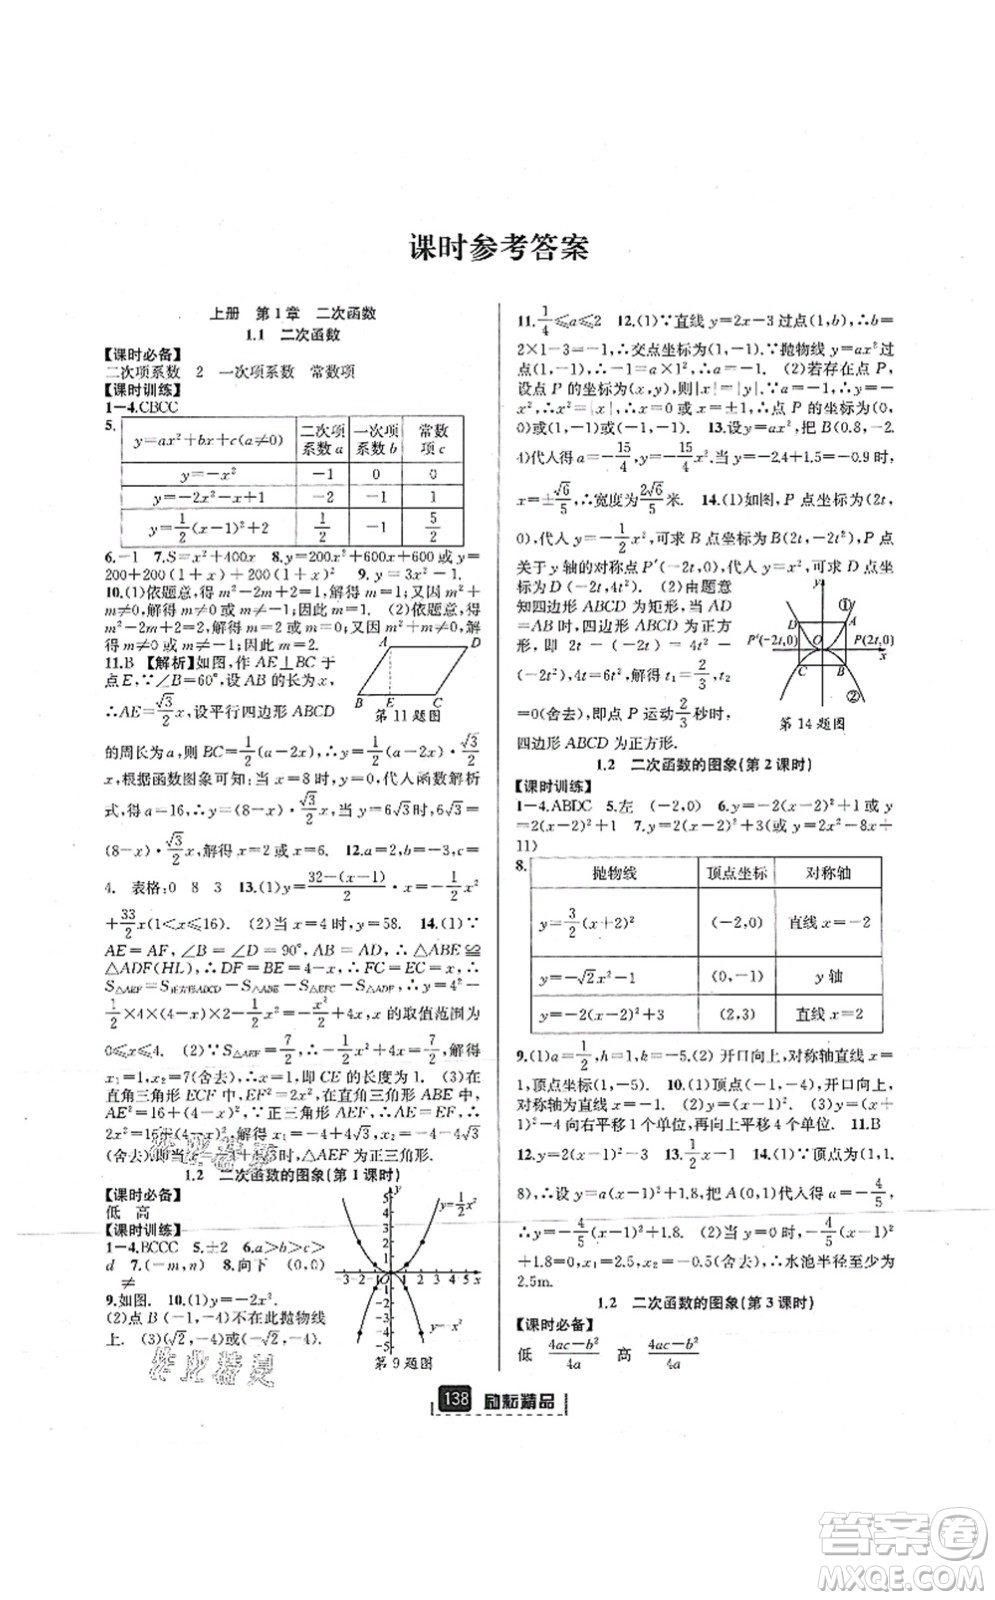 课时参考答案
上册 第1章 二次函数
1.1 二次函数
【课时必备】
二次项系数 2 一次项系数 常数项
【课时训练】
1-4.CBCC
5.
y=ax²+bx+c(a≠0) 二次项系数a 一次项系数b 常数项c
y=-x² -1 0 0
y=-2x²-x+1 -2 -1 1
y=1/2(x-1)²+2 1/2 -1 5/2
6.-1 7.S=x²+400x 8.y=200x²+600x+600或y=
200+200(1+x)+200(1+x)² 9.y=3x²-1.
10.(1)依题意,得m²-2m+1=1;又因为
m²-m≠0,解得m=2;因此m=2. (2)依题意,得
m²-2m+2=2,解得m=2或m=0;又因为
m²-m≠0,解得m≠0且m≠1;因此m=2.
11.B 【解析】如图,作AE⊥BC于
点E,∵∠B=60°,设AB的长为x,
∴AE=√3/2x,设平行四边形ABCD
A D B E C
第11题图
的周长为a,则BC=1/2(a-2x),∴y=1/2(a-2x)·√3/2
x,根据函数图象可知:当x=8时,y=0,代入函数解析
式,得a=16,∴y=1/2(16-2x)·√3/2x,当y=6√3时,6√3=
(8-x)·√3/2x,解得x=2或x=6. 12.a=2,b=-4,c=
4. 表格:0 8 3 13.(1)y=32-(x-1)/2·x=-1/2x²
+33/2x(1<x≤16). (2)当x=4时,y=58. 14.(1)∵
AE=AF,∠B=∠D=90°,AB=AD,∴△ABE≌
△ADF(HL),∴DF=BE=4-x,∴FC=EC=x,∴
S△AEF=S正方形ABCD-S△ABE-S△EFC-S△ADF,∴y=4²-
1/2×4×(4-x)×2-1/2x²=-x²/2+4x,x的取值范围为
0≤x≤4. (2)∵S△AEF=7/2,∴-x²/2+4x=7/2,解得
x₁=1,x₂=7(舍去),即CE的长度为1. (3)在
直角三角形ECF中,EF²=2x²,在直角三角形ABE中,
AE²=16+(4-x)²,∵正三角形AEF中,AE=EF,∴
2x²=16+(4-x)²,
(舍去),
△AEF为正三角形.
1.2 二次函数的图象(第1课时)
【课时必备】
低 高
【课时训练】
1-4.BCCC 5.±2 6.a>b>c>
d 7.(-m,n) 8.向下 (0,0)
≠
9.如图. 10.(1)y=-2x².
(2)点B(-1,-4)不在此抛物线
上. (3)(√2,-4)或(-√2,-4).
y y=1/2x² 5 4 3 2 1
-3 -2 -1 O 1 2 3 4 5 x
-1 -2 -3 -4 -5 y=-x²
第9题图
作业精灵
11.1/4≤a≤2 12.(1)∵直线y=2x-3过点(1,b),∴b=
2×1-3=-1,∴交点坐标为(1,-1).∵抛物线y=ax²过
点(1,-1),∴-1=a×1²,∴a=-1. (2)若存在点P,
设点P的坐标为(x,y),则|x|=|y|,∵a=-1,∴y=
-x²,∴|x|=|-x²|,∴x=0或x=±1,∴点P的坐标为(0,
0)或(1,-1)或(-1,-1). 13.设y=ax²,把B(0.8,-2.
4)代入得a=-15/4,∴y=-15/4x²,当y=-1.5+2.4=-0.9时,
x=±√6/5,∴宽度为2√6/5米. 14.(1)如图,P点坐标为(2t,
0),代入y=-1/2x²,得y=-2t²,∴A点坐标为(2t,-2t²),P点
关于y轴的对称点P′(-2t,0),代入y=x²,得y=4t²,∴
点D坐标为D(-2t,4t²). (2)由题意
知四边形ABCD为矩形,当AD
=AB时,四边形ABCD为正方
形,即2t-(-2t)=4t²-
(-2t²),即4t=6t²,解得t₁=2/3,t₂
=0(舍去),即点P运动2/3秒时,
四边形ABCD为正方形.
y ① D A P′(-2t,0) O P(2t,0) x C B ②
第14题图
1.2 二次函数的图象(第2课时)
【课时训练】
1-4.ABDC 5.左 (-2,0) 6.y=-2(x+2)²+1或y
=2(x-2)²+1 7.y=2(x-2)²+3(或y=2x²-8x+
11)
8.
抛物线 顶点坐标 对称轴
y=3/2(x+2)² (-2,0) 直线x=-2
y=-√2x²-1 (0,-1) y轴
y=-2(x-2)²+3 (2,3) 直线x=2
9.(1)a=1/2,h=1,k=-5.(2)开口向上,对称轴直线x=
1,顶点坐标为(1,-5). 10.(1)顶点(-1,-4),开口向上,
对称轴为直线x=-1. (2)y=(x-1)². (3)向
右平移1个单位,再向上平移4个单位. 11.B
12.y=2(x-1)²-2 13.-1/2 14.(1)∵顶点为(1,1.
8),∴设y=a(x-1)²+1.8,把A(0,1)代入得a=-4/5,
∴y=-4/5(x-1)²+1.8. (2)当y=0时,-4/5(x-1)²
+1.8=0,x₁=2.5,x₂=-0.5(舍去),∴水池半径至少
2.5m.
1.2 二次函数的图象(第3课时)
【课时必备】
低 4ac-b²/4a 高 4ac-b²/4a
138 励耘精品
答案卷
MXQE.COM